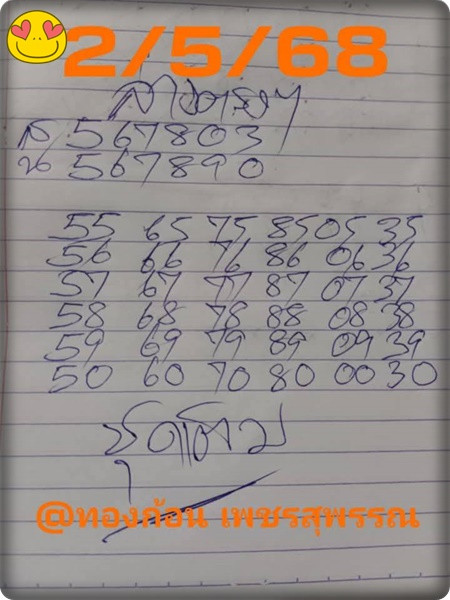 2/5/68
ส 567803
น 567890
55 65 75 85 05 35
56 66 76 86 06 36
57 67 77 87 07 37
58 68 78 88 08 38
59 69 79 89 09 39
50 60 70 80 00 30
ชุดเต็ม
@ทองก้อน เพชรสุพรรณ